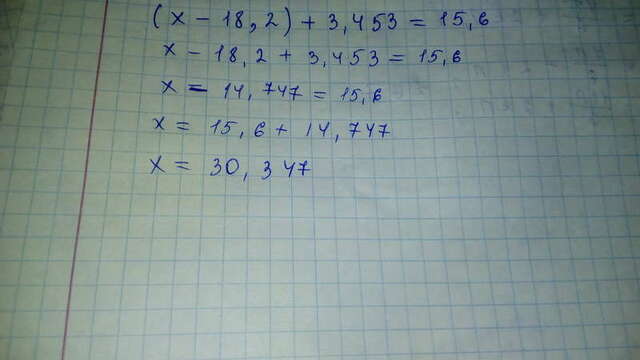 (x - 18,2) + 3,453 = 15,6
x - 18,2 + 3,453 = 15,6
x - 14,747 = 15,6
x = 15,6 + 14,747
x = 30,347